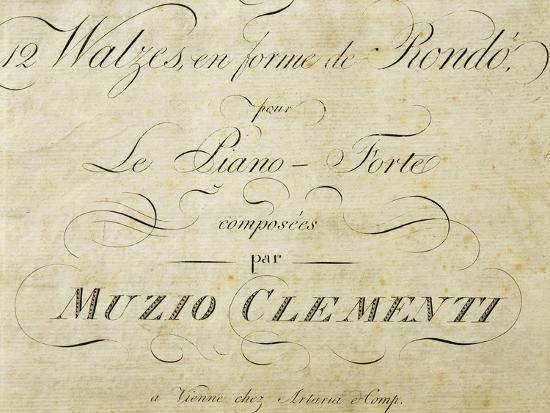 12 Walzes, en forme de Rondó,
pour
Le Piano-Forte
composées
par
MUZIO CLEMENTI
a Vienne chez Artaria et Comp.